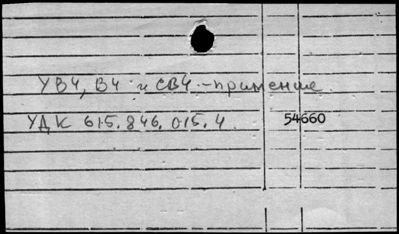 УВЧ, ВЧ и СВЧ - примение
УДК 615.846.015.4 54660